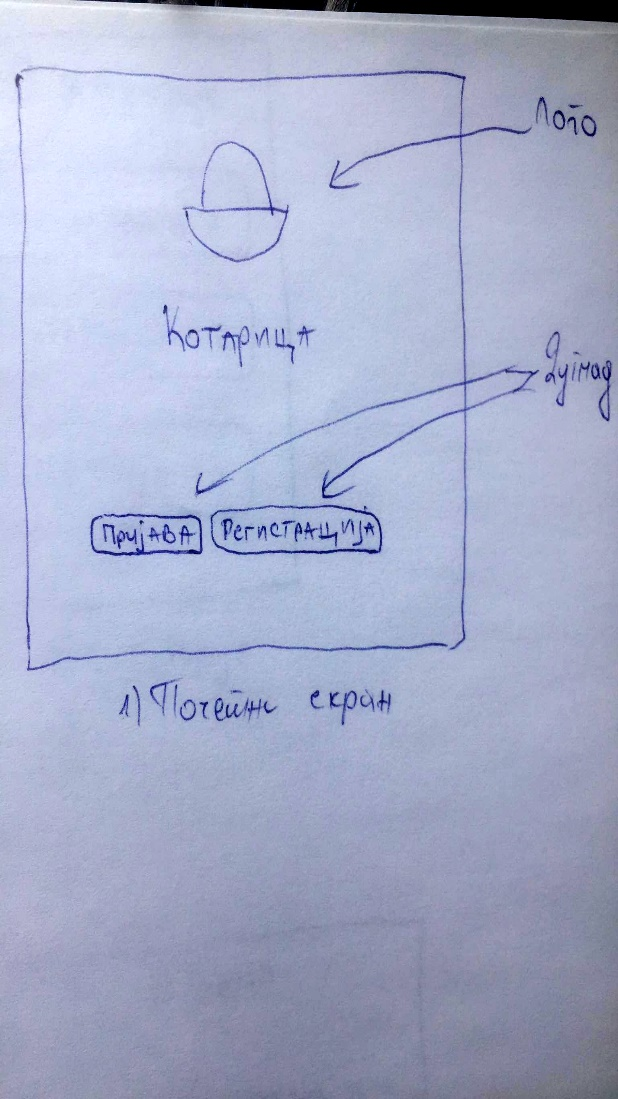 Лого
Котарица
Дугмад
Пријава Регистрација
1) Почетни екран